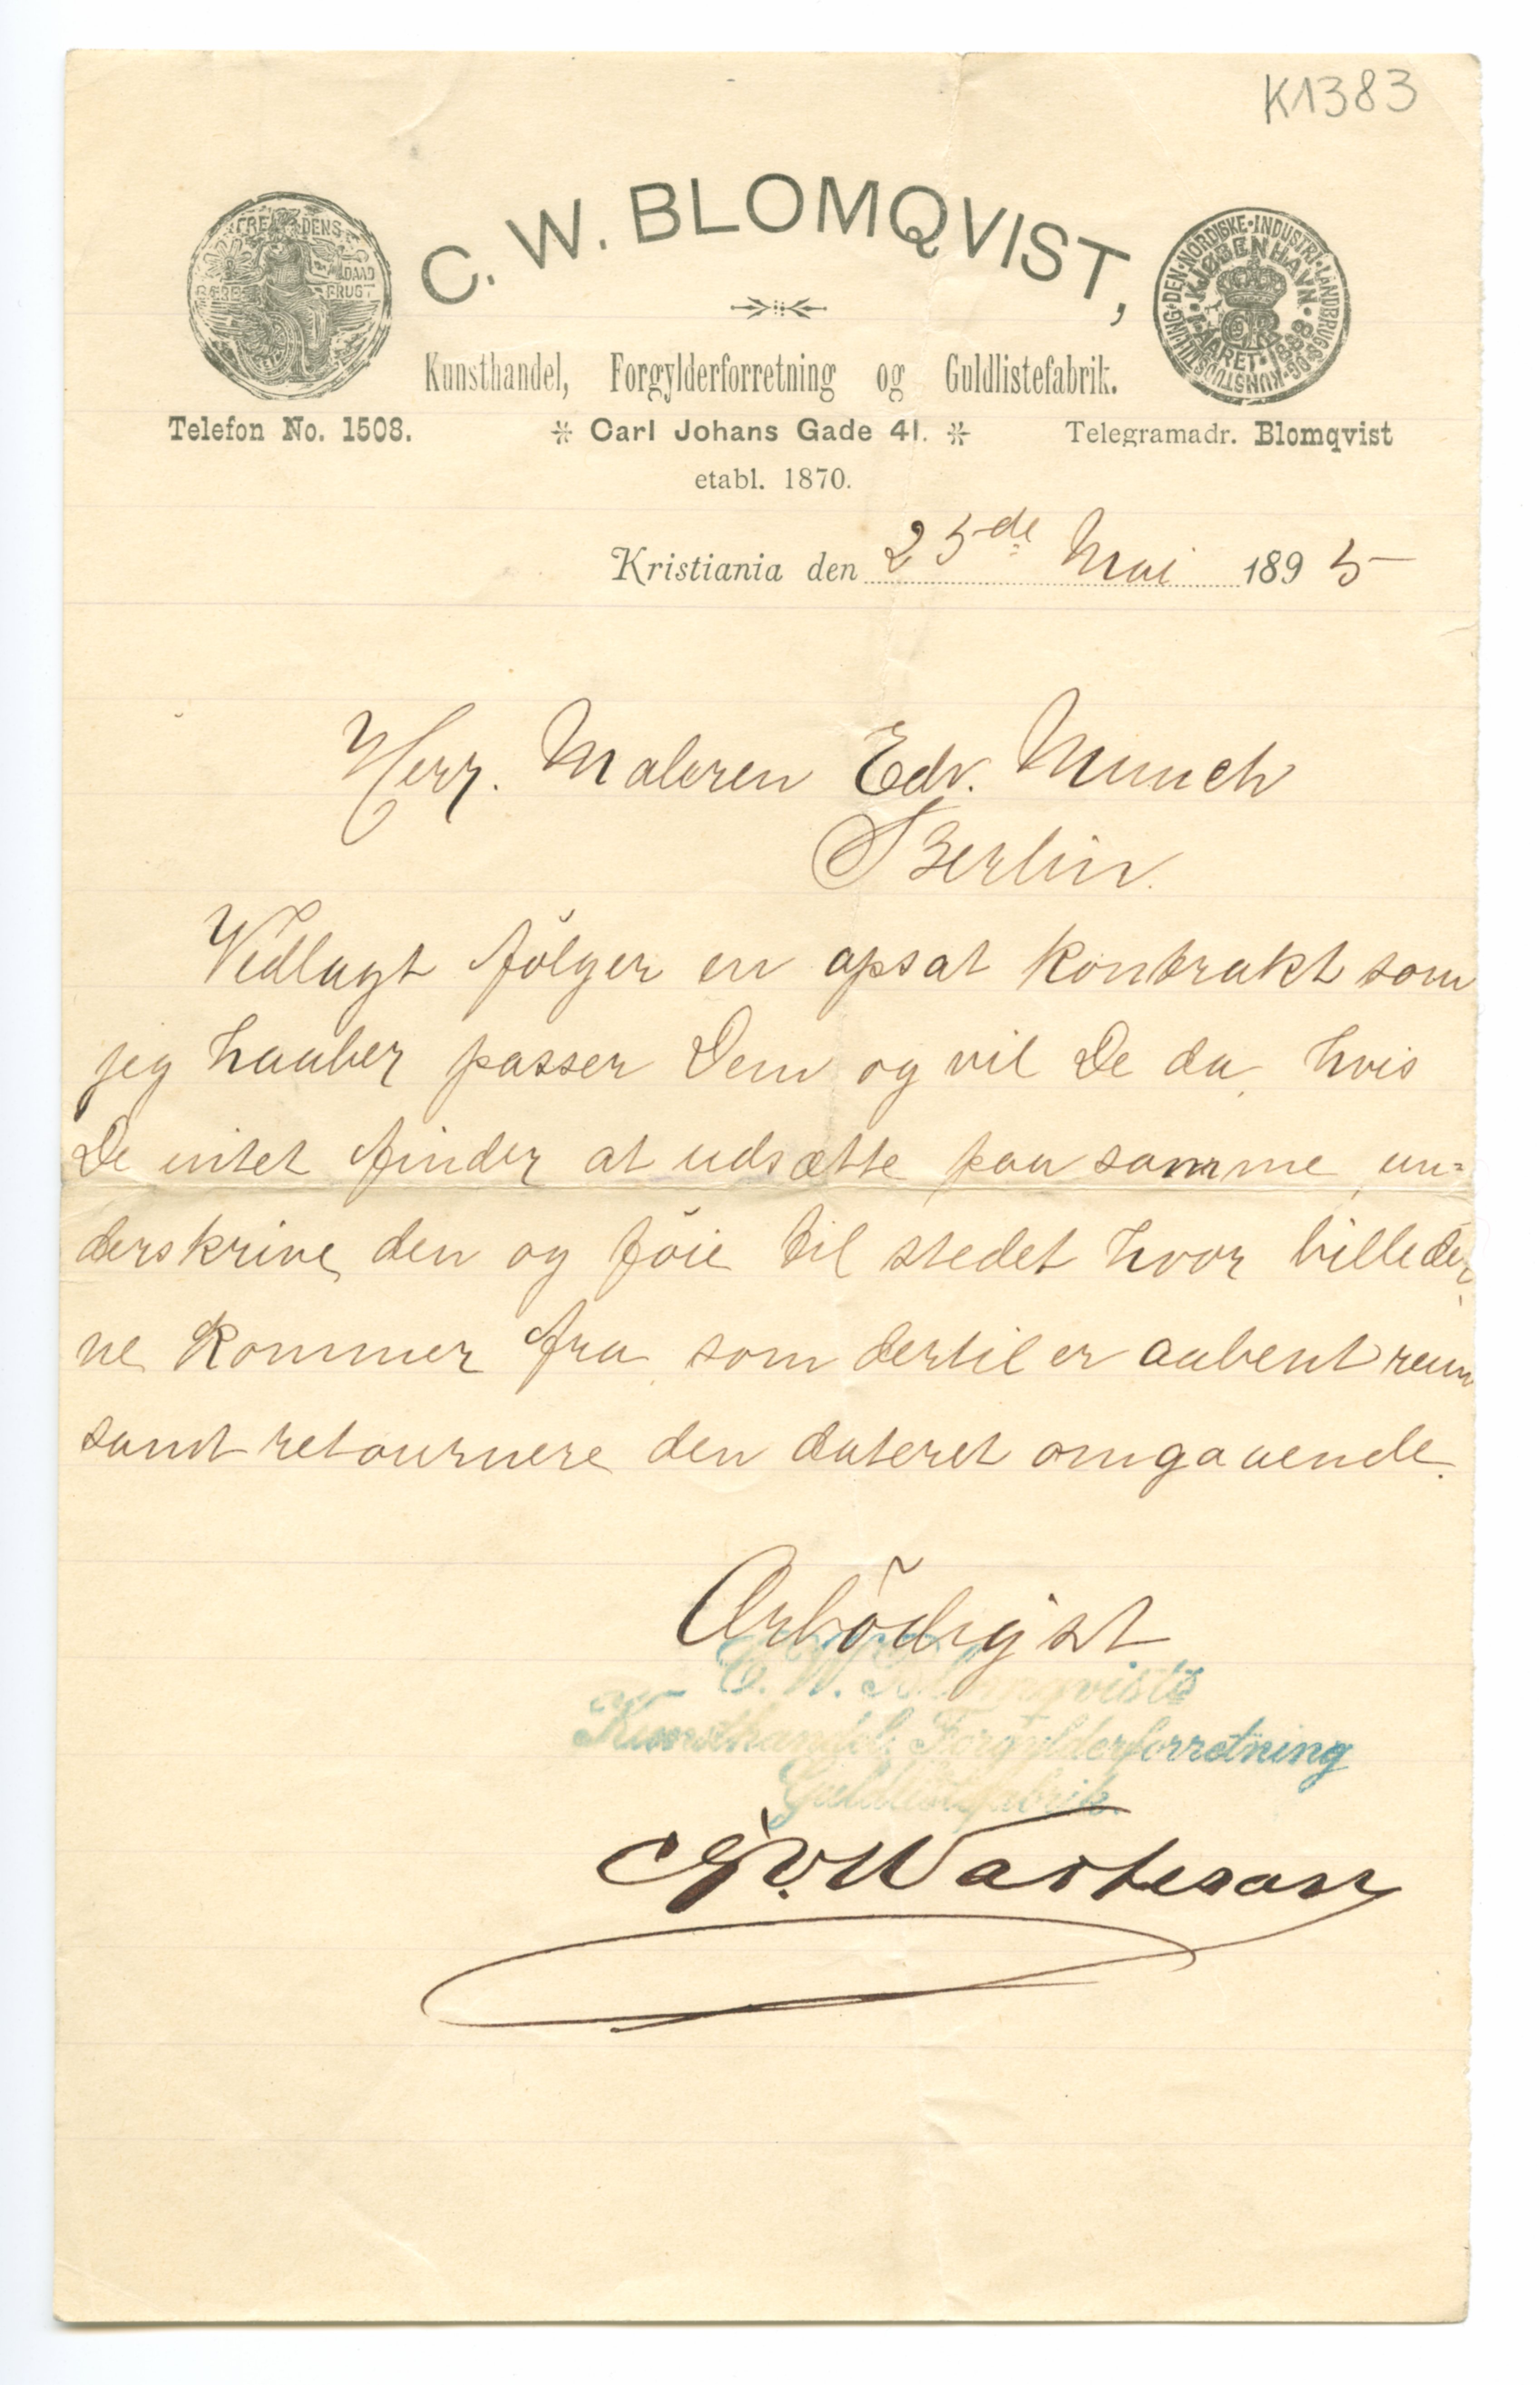 K1383
C. W. BLOMQVIST,
FREDENS
DAAD
BÆRE FRUGT
DEN·NORDISKE·INDUSTRI·LANDBRUGS·OG·KUNSTUDSTILLING·
I·KJØBENHAVN·
AARET·1888
Kunsthandel, Forgylderforretning og Guldlistefabrik.
Telefon No. 1508. Carl Johans Gade 41. Telegramadr. Blomqvist
etabl. 1870.
Kristiania den 25de Mai 1895
Herr. Maleren Edv. Munch
Berlin.
Vedlagt følger en opsat Kontrakt som
jeg haaber passer Dem og vil De da, hvis
De intet finder at udsætte paa samme, un=
derskrive den og føie til stedet hvor billeder,
ne Kommer fra, som dertil er aabent rum
samt retournere den dateret omgaaende.
Ærbødigst
C. W. Blomqvist's
Kunsthandel, Forgylderforretning
Guldlistefabrik.